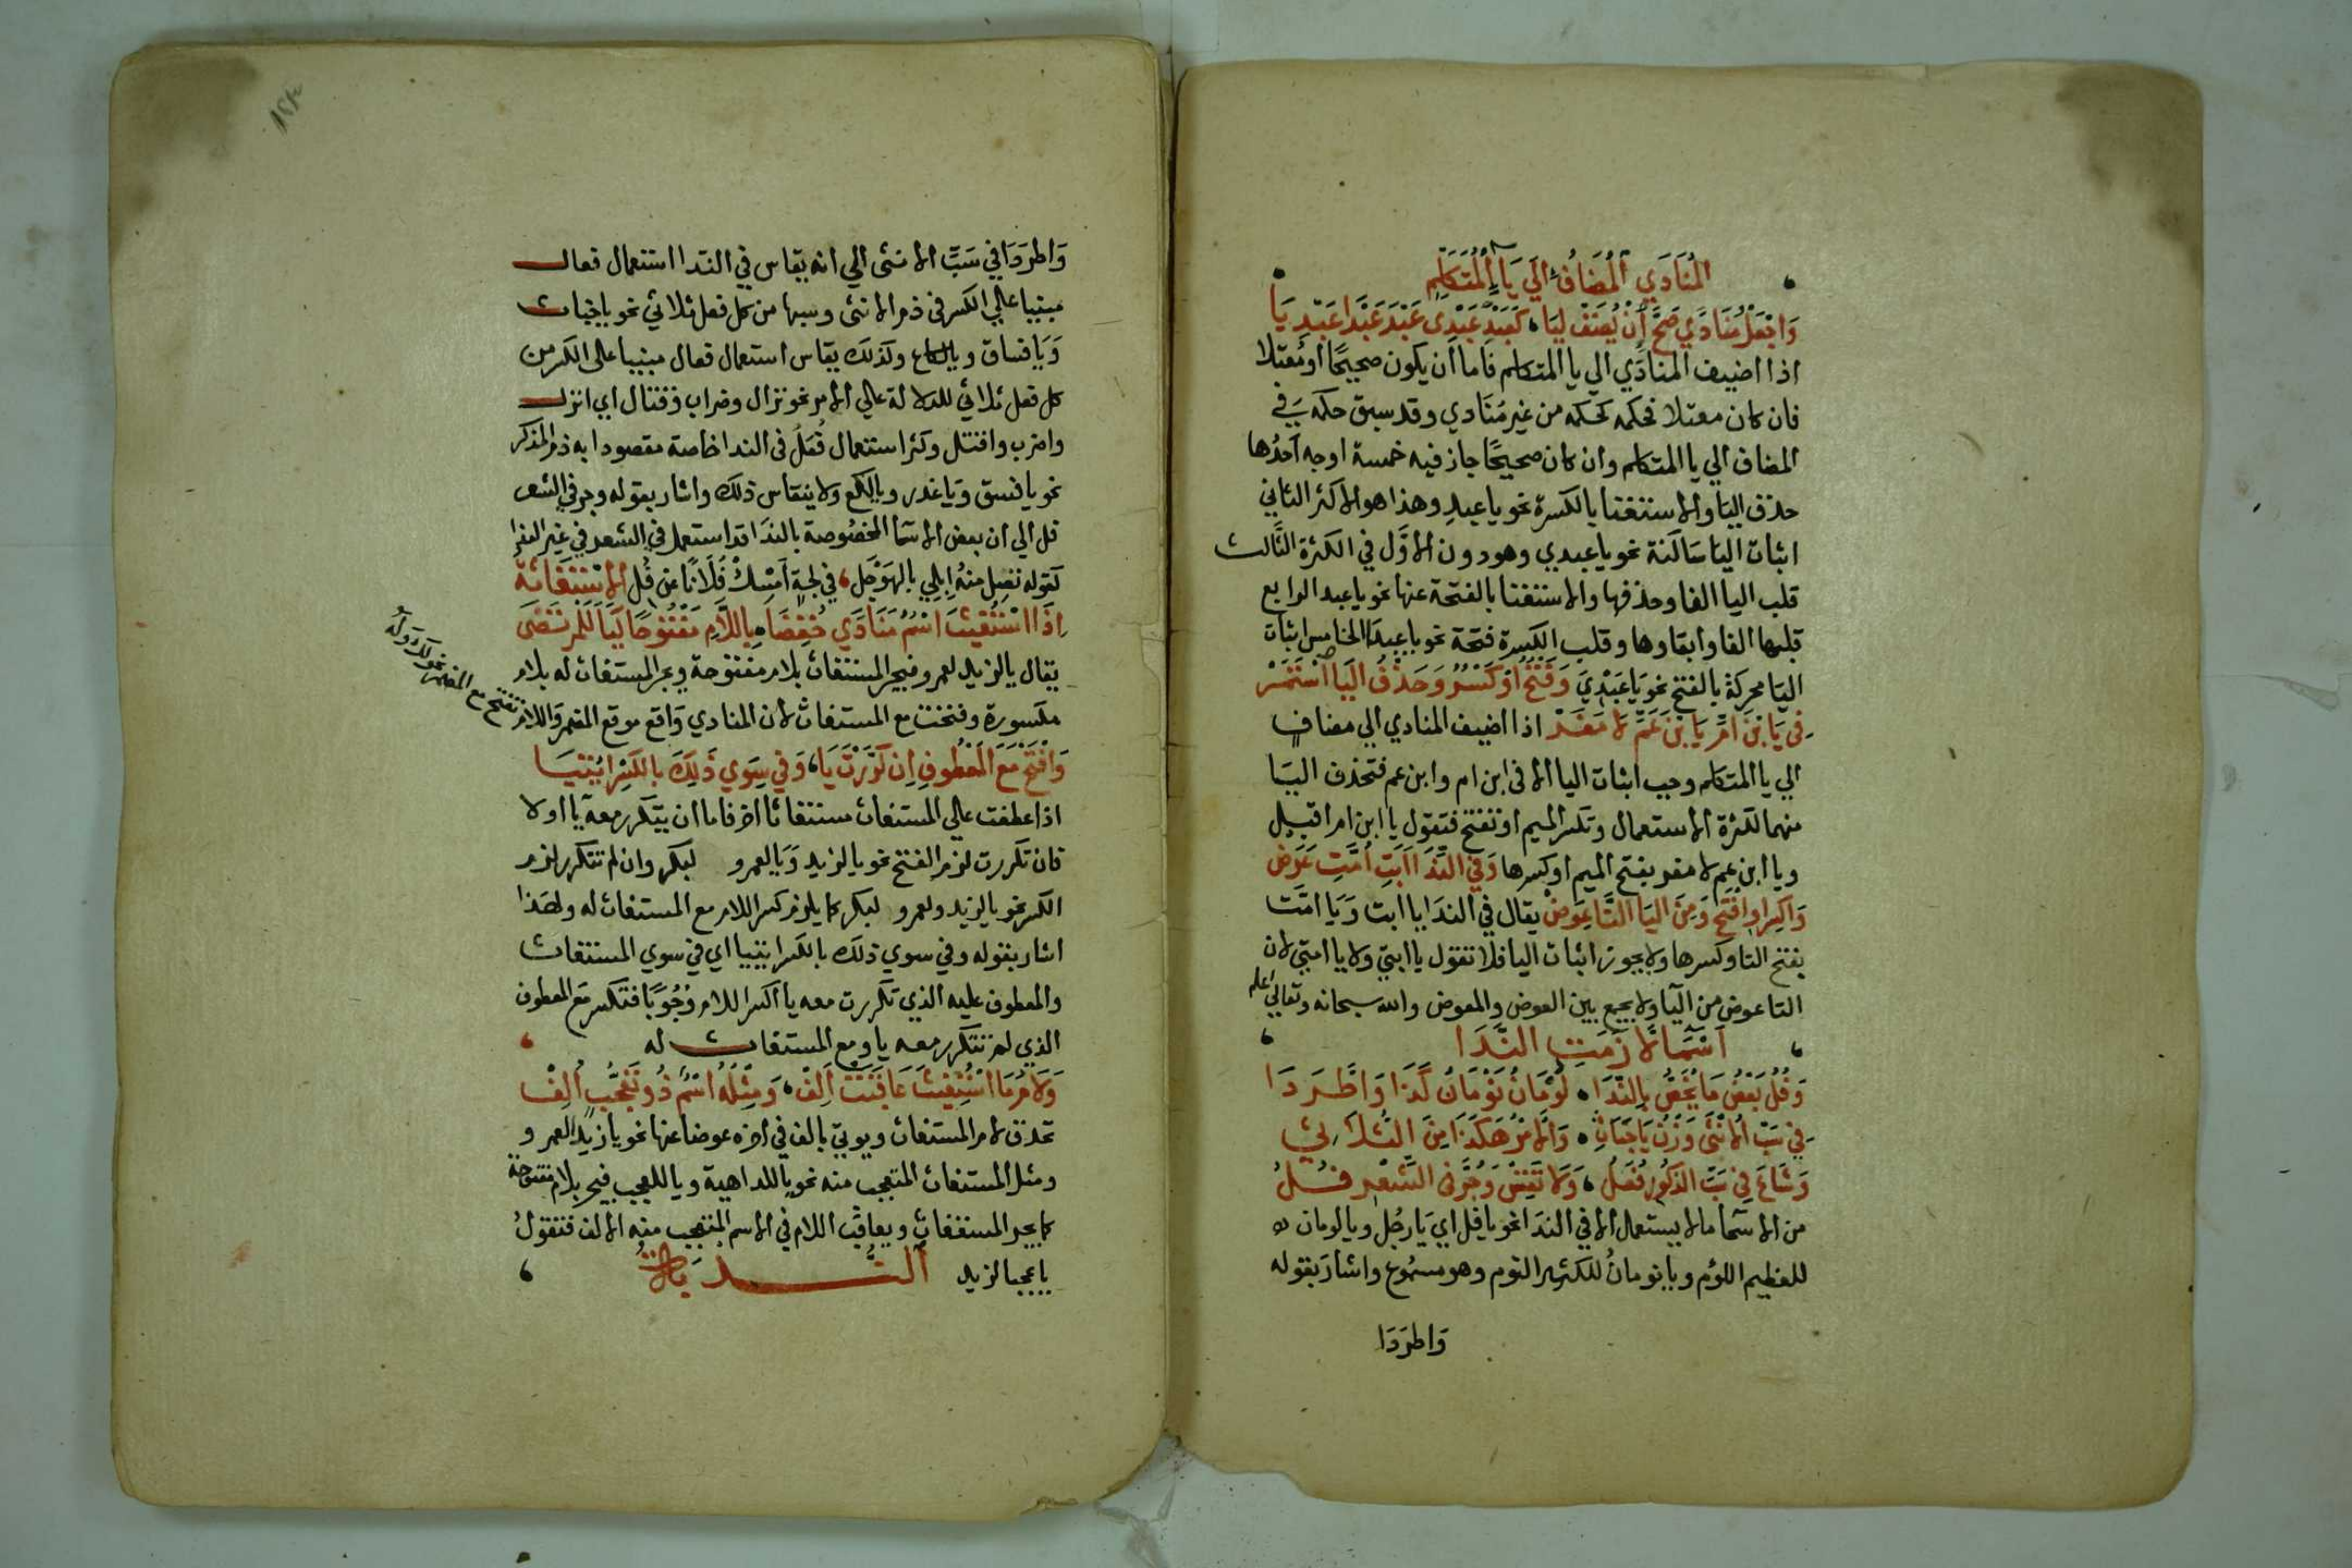 المُنَادَي المُضَافُ الَي يَاءِ المُتَكَلِّمِ
وَاجْعَلْ مُنَادًي صَحَّ أنْ يُضَفْ لِيَا، كَعَبْدِ عَبْدِي عَبْدَ عَبْدَا عَبْدِيَا
اذا اضيف المنادَي الي يا المتكلم فاما أن يكون صحيحًا أو مُعتلا
فان كان معتلا فحكمه كحكمه من غير مُنَادي وقد سبق حكمه فِي
المضاف الي يا المتكلم وان كان صحيحًا جاز فيه خمسة اوجه أحدُها
حذف اليا والاستغنا بالكسرة نحو يا عبدِ وهذا هو الاكثر الثاني
اثبات اليا سَاكنة نحو يا عبدي وهو دون الاوَّل في الكثرة الثَّالث
قلب اليا الفا وحذفها والاستغنا بالفتحة عنها نحو يا عبد الرابع
قلبها الفا وابقاوها وقلب الكسرة فتحة نحو يا عبدَا الخامس اثبات
اليا محركة بالفتح نحو يَا عَبْدِيَ وَفَتْحٌ أوْ كَسْرٌ وَحَذْفُ اليَا اسْتَمَرْ
فِي يَا ابْنَ امَّ يَا بْنَ عَمَّ لا مَفَرْ اذا اضيف المنادي الي مضافٍ
الي يا المتكلم وجب اثبات اليا الا في ابن ام وابن عم فتحذف اليَا
منهما لكثرة الاستعمال وتكسر الميم او تفتح فتقول يا ابن ام اقبل
ويا ابن عم لا مفر بفتح الميم او كسرها وَفِي النِّدَا ابَتِ أُمَّتِ عَرَض
وَاكْسِر اوافْتَح وَمِنَ اليَا التَّا عِوَضْ يقال في الندَا يا ابت وَيَا امَّت
بفتح التا وكسرها ولا يجوز اثبات اليا فلا تقول يا ابتي ولا يا امتي لان
التا عوض من اليَا ولا يجمع بين العوض والمعوض والله سبحانه وتعالي اعلم
اسْمَاءٌ لازَمَتِ النِّدَا
وَفُلُ بَعْضُ مَا يُخَصُّ بِالنِّدَا، لُؤْمَانُ نَوْمَانُ كَذَا وَاطَّرَدَا
فِي سَبِّ الانْثَى وَزْنُ يَا خَبَاثِ، وَالامْرُ هَكَذَا مِنَ الثُّلاثِي
وَشَاعَ فِي سَبِّ الذُّكُورِ فُعَلُ، وَلا تَقِسْ وَجُرَّ فِي الشِّعْرِ فُلُ
من الاسما ما لا يستعمل الا في الندَا نحو يا فل اي يَا رجُل ويا لومان
للعظيم اللؤم ويا نومانُ للكثير النوم وهو مسمُوع واشارَ بقوله
وَاطردَا
وَاطردَا فِي سَبِّ الانثى الي انه يقاس في الندا استعمال فعال
مبنيا علي الكسر في ذم الانثى وسبها من كل فعل ثلاثي نحو يا خباث
وَيَا فساق ويا لكاع وكذلك يقاس استعمال فعال مبنيا على الكسر من
كل فعل ثلاثي للدلالة علي الامر نحو نزال وضراب وقتال اي انزل
واضرب واقتل وكثر استعمال فُعَلُ في الندا خاصة مقصودا به ذم المذكر
نحو يا فسق وَيا غدر ويا لكع ولا ينقاس ذلك واشار بقوله وجر في الشعر
فل الي ان بعض الاسَما المخصُوصة بالندَا قد استعمل في الشعر في غير الندا
كقوله تضل منهُ إبلي بالهَوْجَل، في لجة أمْسِكْ فُلَانًا عن فُلِ الاسْتِغَاثَة
اِذَا اسْتُغِيثَ اسْمٌ مُنَادًي خُفِضَا، بِاللَّامِ مَفْتُوحًا كَيَا لَلْمُرْتَضَى
يقال يا لزيد لعمرو فيجر المستغاث بلام مفتوحة ويجر المستغاث له بلام
مكسورة وفتحت مع المستغاث لان المنادي وَاقع موقع المضمر وَاللام
تفتح مع المضمر نحو لَكَ وَلَهُ
وَافْتَحْ مَعَ المَعْطُوفِ إن كَرَّرْتَ يَا، وَفي سِوَي ذَلِكَ بالكَسْرِ ائْتِيَا
اذا عطفت علي المستغاث مستغاثا اخر فاما ان يتكرر معه يا اولا
فان تكررت لزم الفتح نحو يا لزيد وَيَا لعمرو لبكر وان لم تتكرر لزم
الكسر نحو يا لزيد ولعمرو لبكر كما يلزم كسر اللام مع المستغاث له ولهَذا
اشار بقوله وفي سوي ذلك بالكسر ائتيا اي في سوي المستغاث
والمعطوف عليه الذي تكررت معه يا اكسر اللام وُجُوبًا فتكسر مع المعطوف
الذي لم تتكرر معه يا ومع المستغاث له
وَلَامُ مَا اسْتُغِيثَ عَاقَبَتْ الِفْ، وَمِثْلُهُ اسْمٌ ذُو تَعَجُّبٍ أُلِفْ
تحذف لام المستغاث ويوتي بالف في اخره عوضا عنها نحو يا زيدا لعمرو
ومثل المستغاث المتعجب منه نحو يا للداهية ويا للعجب فيجر بلام مفتوحة
كما يجر المستغاث ويعاقب اللام في الاسم المتعجب منه الالف فتقولُ
يا عجبا لزيد النُّدْبَةُ